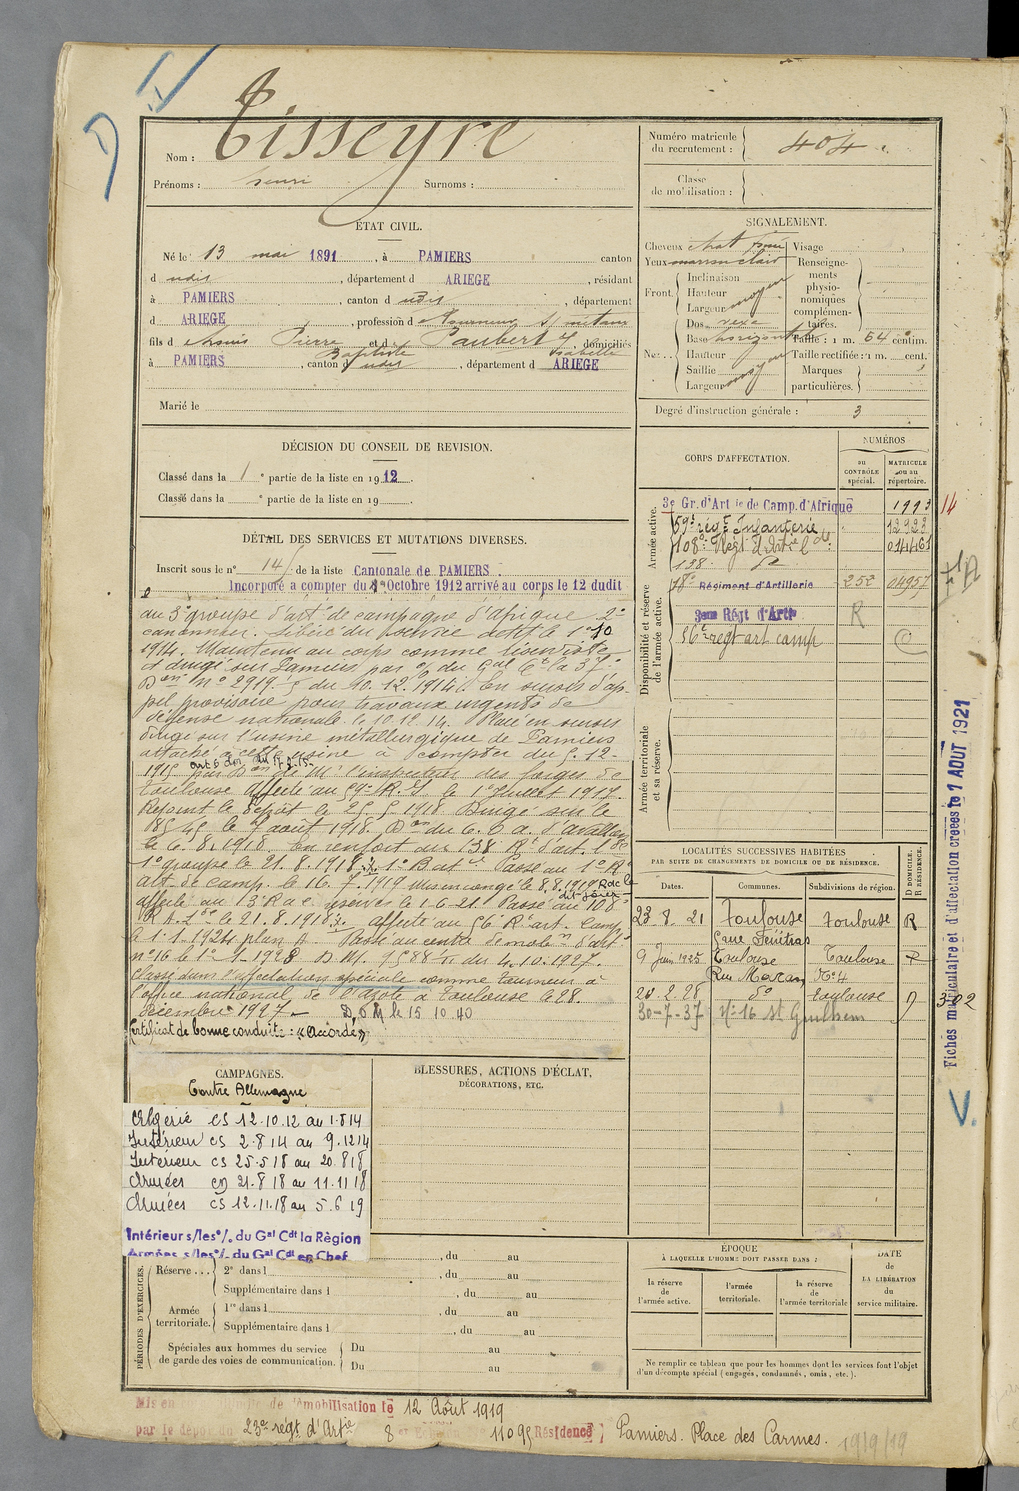 Tisseyre
Nom :
Prénoms : henri Surnoms :
Numéro matricule
du recrutement : 404
Classe
de mobilisation :
ÉTAT CIVIL.
Né le 13 mai 1891, à PAMIERS canton
d udit, département d ARIEGE, résidant
à PAMIERS, canton d udit, département
d ARIEGE, profession d Tourneur s/ métaux
fils d Pierre et d Paubert, domiciliés
Baptiste Isabelle
à PAMIERS, canton d udit, département d ARIEGE
Marié le
SIGNALEMENT.
Cheveux chat foncé Visage
Yeux marron clair Renseigne-
ments
physio-
nomiques
complémen-
taires.
Front. Inclinaison
Hauteur
Largeur moyen
Nez... Dos vexe
Base horizontale Taille : 1 m. 64 centim.
Hauteur Taille rectifiée : 1 m. cent.
Saillie Marques
Largeur moyen particulières.
Degré d'instruction générale : 3
DÉCISION DU CONSEIL DE REVISION.
Classé dans la 1e partie de la liste en 1912.
Classé dans la e partie de la liste en 19
DÉTAIL DES SERVICES ET MUTATIONS DIVERSES.
Inscrit sous le n° 14 de la liste Cantonale de PAMIERS
Incorporé a compter du 8 Octobre 1912 arrivé au corps le 12 dudit
au 3e groupe d'art ie de campagne d'Afrique 2e
canonnier. Libéré du service actif le 1er 10
1914. Maintenu au corps comme
et dirigé sur Pamiers par o/ du Gal Ct la 37e
Don n° 2919 du 10.12.1914. En sursis d'ap-
pel provisoire pour travaux urgents de
défense nationale le 10.12.14. Placé en sursis
dirigé sur l'usine métallurgique de Pamiers
attaché à cette usine à compter du 5.12.
1915 par Don de Mr l'inspecteur des forges de
art 6 loi du 17.8.15
Toulouse. Affecté au 59e R.I. le 1er Juillet 1917.
Rejoint le dépôt le 25.5.1918. Dirigé sur le
le 7 août 1918. Don du C.O.A. d'Avallon
le 6.8.1918. En renfort au 138e Rt d'art. lde
1er groupe le 21.8.1918. Passé au 1er R
art. de camp. le 16.7.1919. Mis en congé le 8.8.1919
affecté au 13e R a c réserves le 1.6.21. Passé au 108e
R A L de le 21.8.1918. affecté au 56e Rt art. camp
le 1.1.1924 plan A. Passé au centre de mob on d'art
n° 16 le 1er 1-1928 D M. 9588 du 4.10.1927.
Classé dans l'affectation spéciale comme tourneur à
l'office national de l'azote à Toulouse le 28.
décembre 1927. D, O M le 15 10 40
Certificat de bonne conduite : « Accordé »
CORPS D'AFFECTATION.
NUMÉROS
au
CONTRÔLE
spécial.
MATRICULE
ou au
répertoire.
Armée active.
3e Gr. d'Art ie de Camp. d'Afrique 1993 14
59e régt Infanterie 12922
108e Régt d'Art ie lde 04461
138 de
18e Régiment d'Artillerie 252 04957
Disponibilité et réserve
de l'armée active.
3eme Régt d'Art ie R
56e regt art camp C
Armée territoriale
et sa réserve.
Fiches matriculaire et d'affectation créées le 1 AOUT 1921
LOCALITÉS SUCCESSIVES HABITÉES
PAR SUITE DE CHANGEMENTS DE DOMICILE OU DE RÉSIDENCE.
Dates. Communes. Subdivisions de région. D DOMICILE. R RÉSIDENCE.
23 8 21 Toulouse Toulouse R
9 Juin 1925 Toulouse Toulouse R
20.2.28 do toulouse D 3.02
30-7-37 n° 16 St Guilhem
CAMPAGNES.
Contre Allemagne
Algérie cs 12.10.12 au 1.8 14
Intérieur cs 2.8 14 au 9.12 14
Intérieur cs 25.5 18 au 20.8 18
Armées cd 21.8 18 au 11.11 18
Armées cs 12.11.18 au 5.6 19
Intérieur s/les o/. du Gal Cdt la Règion
Armées s/les o/. du Gal Cdt en Chef
BLESSURES, ACTIONS D'ÉCLAT,
DÉCORATIONS, ETC.
PÉRIODES D'EXERCICES.
, du au
Réserve... 2e dans l , du au
Supplémentaire dans l , du au
Armée
territoriale. 1re dans l , du au
Supplémentaire dans l , du au
Spéciales aux hommes du service
de garde des voies de communication. Du au
Du au
ÉPOQUE
À LAQUELLE L'HOMME DOIT PASSER DANS :
la réserve
de
l'armée active.
l'armée
territoriale.
la réserve
de
l'armée territoriale
DATE
de
LA LIBÉRATION
du
service militaire.
Ne remplir ce tableau que pour les hommes dont les services font l'objet
d'un décompte spécial (engagés, condamnés, omis, etc.).
Mis en congé de démobilisation le 12 Août 1919
par le dépôt du 23e regt d'Art ie 8e 11095 Résidence Pamiers. Place des Carmes. 19/9/19